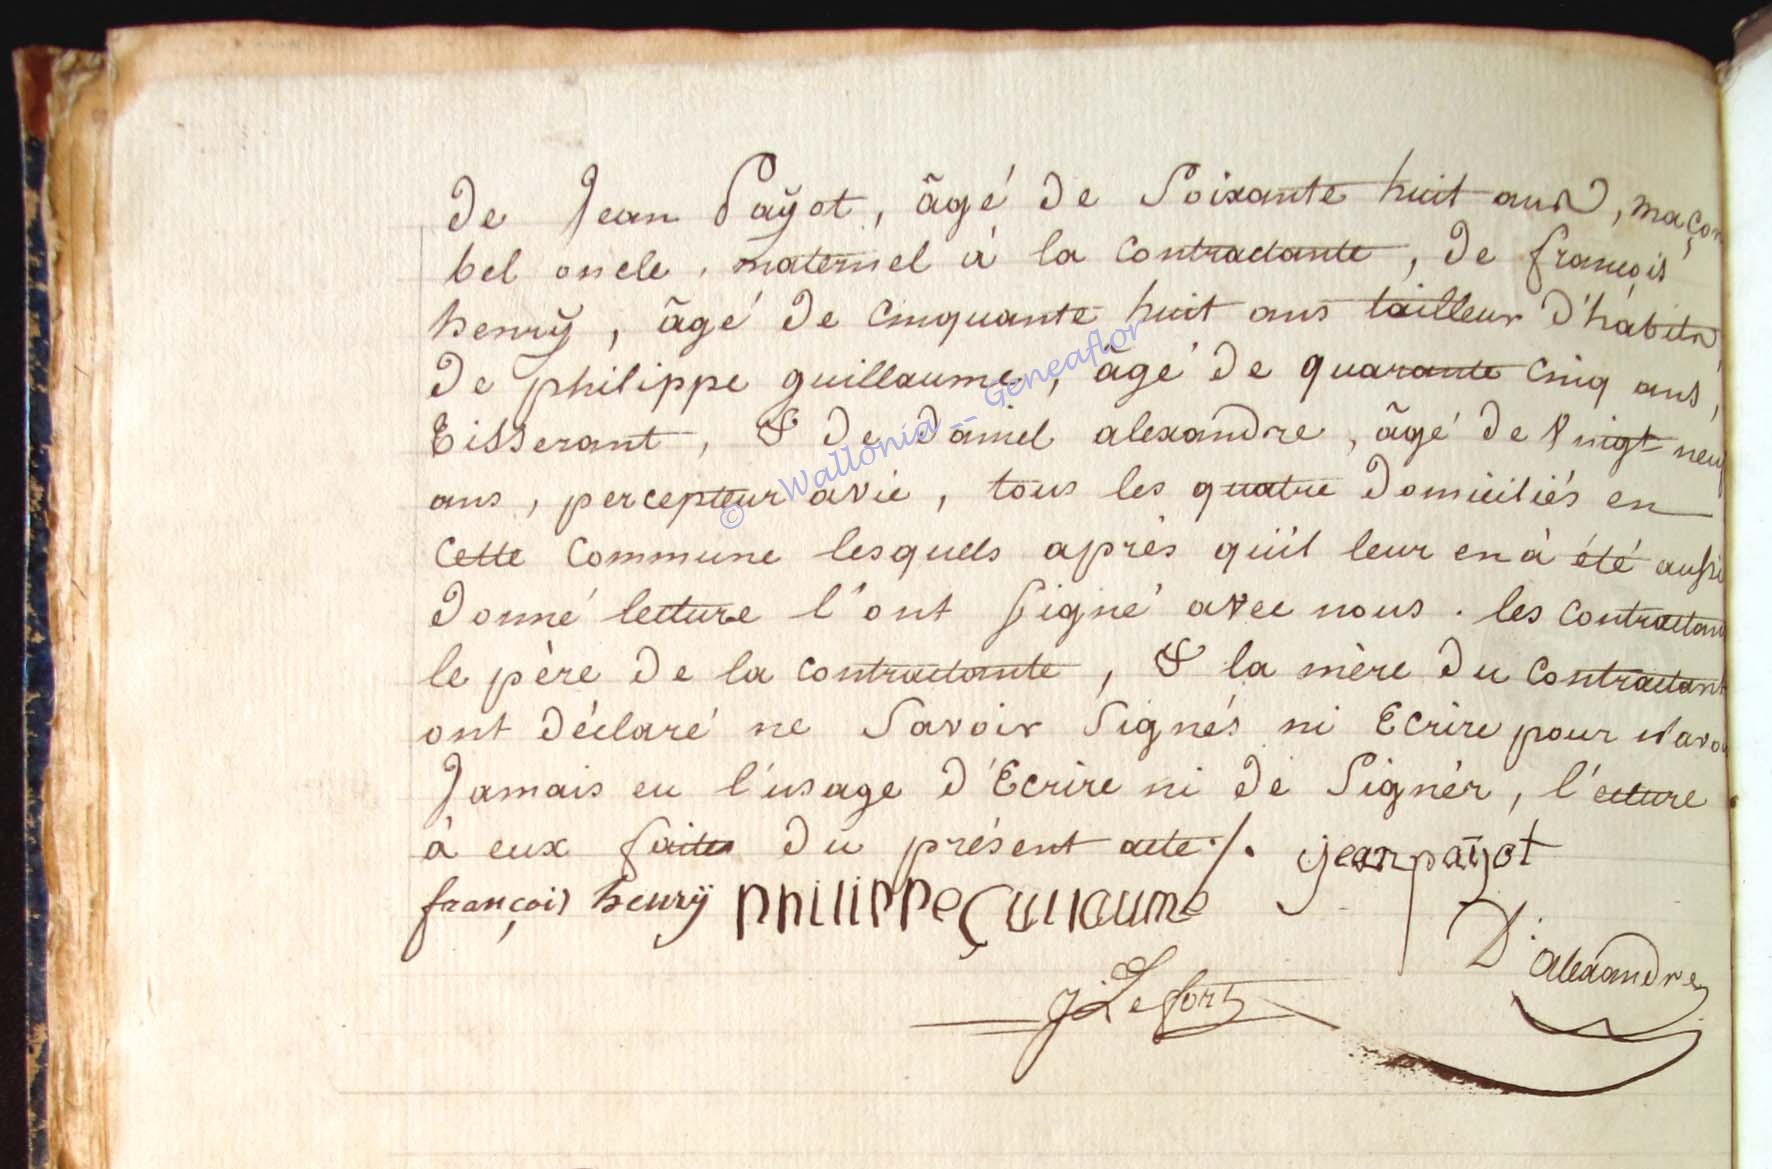 de Jean Paÿot, âgé de Soixante huit ans, maçon
bel oncle, maternel à la contractante, de françois
henrÿ, âgé de cinquante huit ans tailleur d'hábits,
de philippe guillaume, âgé de quarante cinq ans,
tisserant, & de daniel alexandre, âgé de vingt neuf
ans, percepteur avie, tous les quatre domiciliés en
cette commune lesquels après qu'il leur en à été aussi
donné lecture l'ont signé avec nous. les contractan
le père de la contractante, & la mère du contractant
ont déclaré ne savoir signés ni Ecrire pour n'avoi
Jamais eu l'usage d'Ecrire ni de signér, l'ecture
à eux faite du présent acte ./. jean paÿot
françois henrÿ philippe Guilaume
D. alexandre
J. Lefort
© Wallonia -- Geneaflor